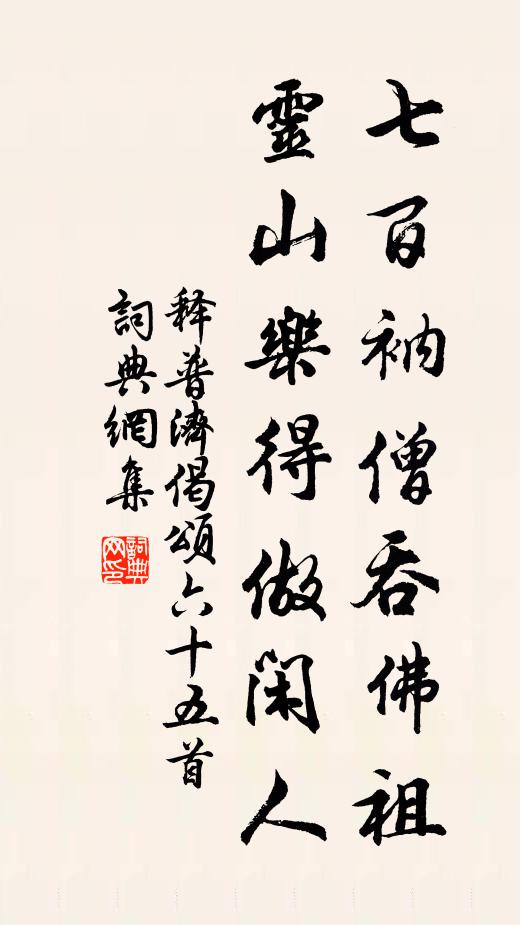 七百衲僧吞佛祖
靈山樂得做閑人
释普濟偈頌六十五首
詞典網集
詞典網印